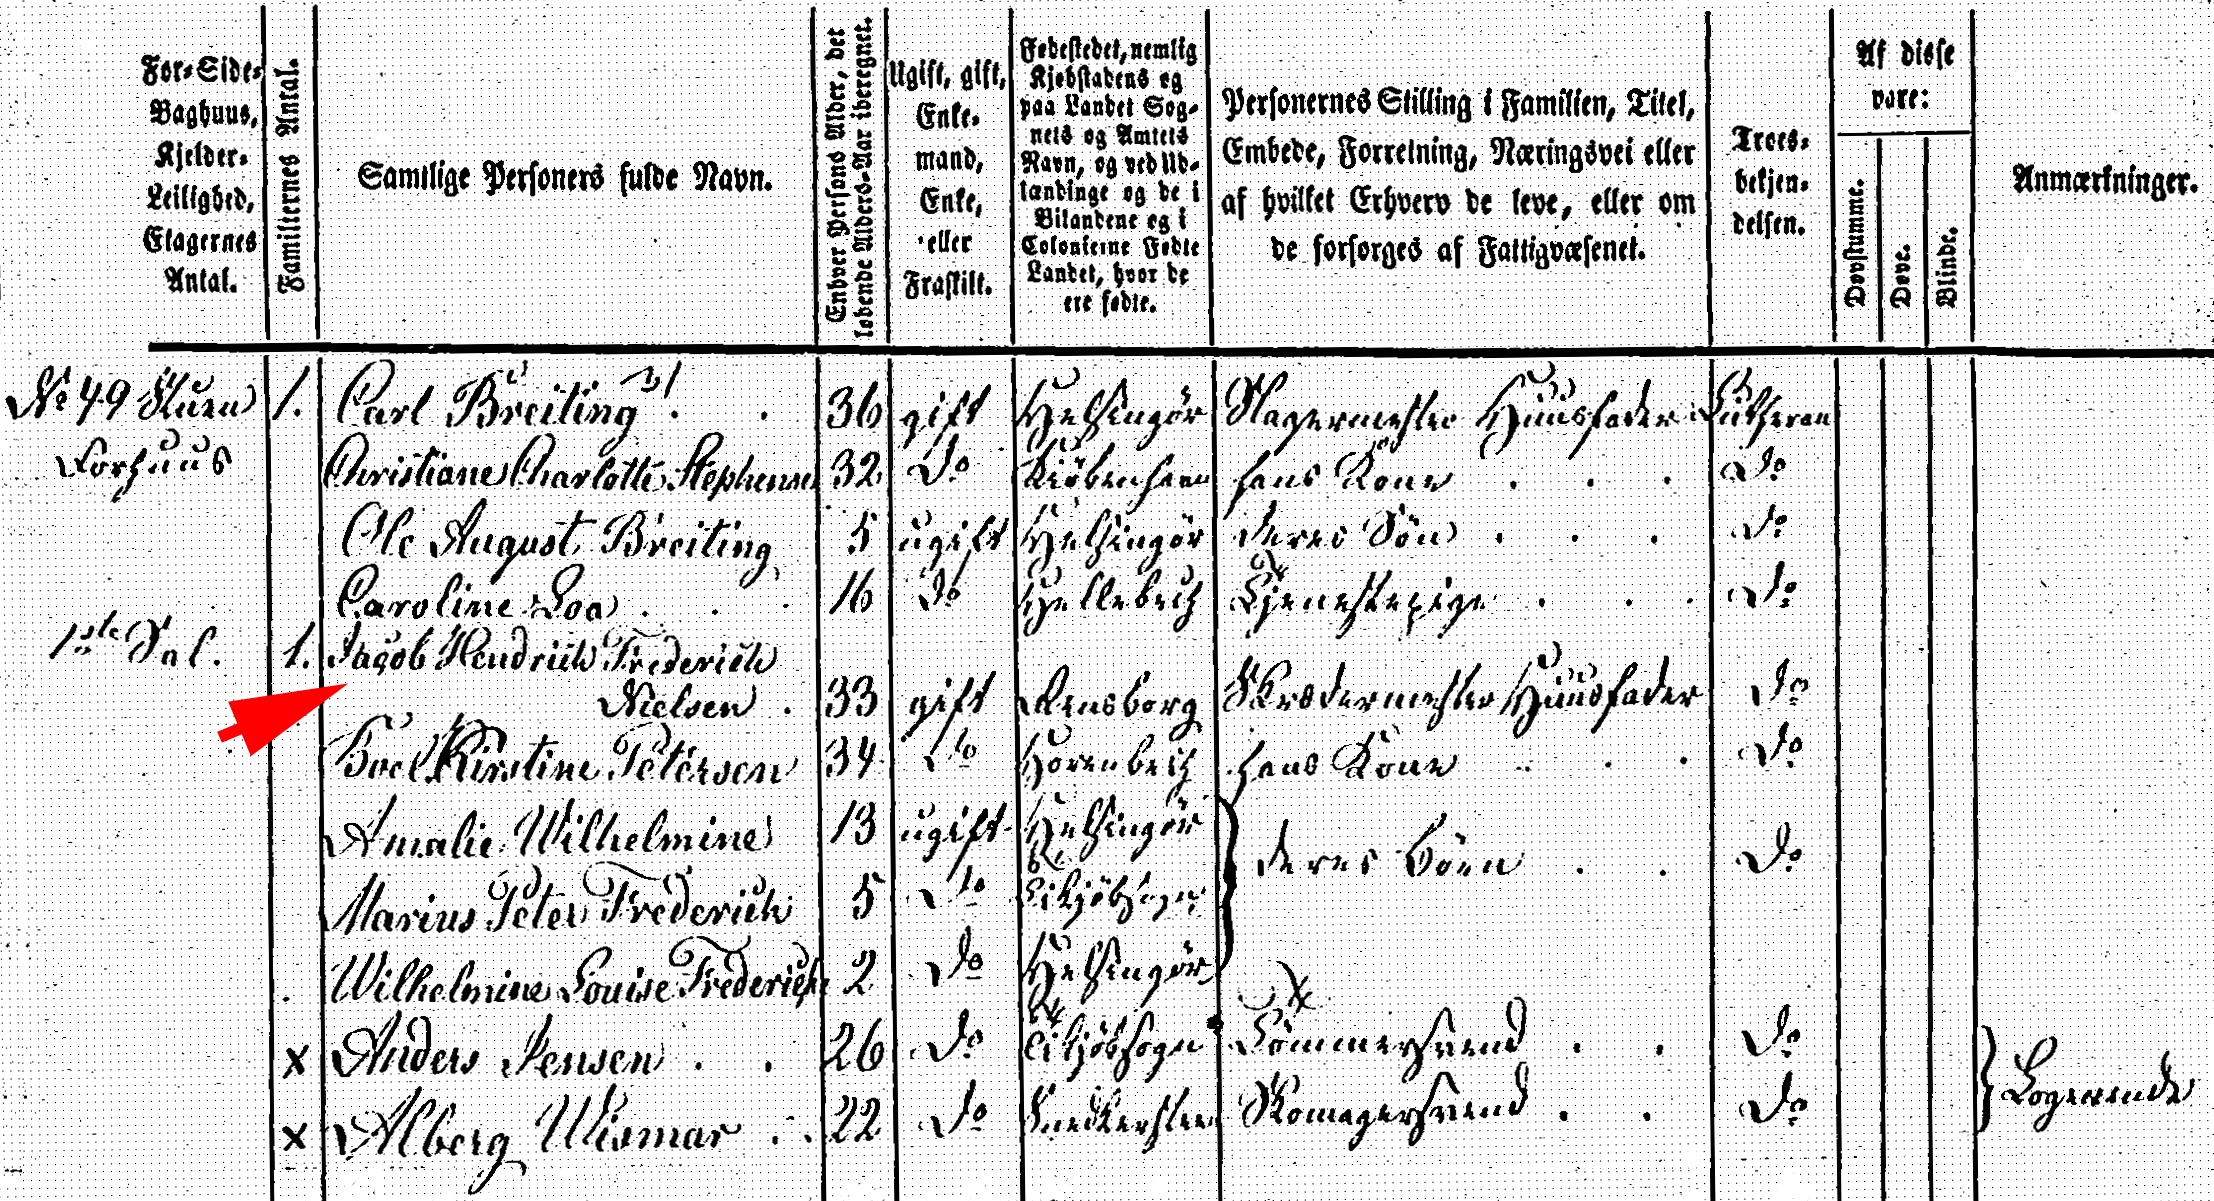 For- Side-
Baghuus,
Kjelder-
Leilighed,
Etagernes
Antal.
Familiernes Antal.
Samtlige Personers fulde Navn.
Enhver Persons Alder, det
løbende Alders-Aar iberegnet.
Ugift, gift,
Enke-
mand,
Enke,
eller
Fraskilt.
Fødestedet, nemlig
Kjøbstadens og
paa Landet Sog-
nets og Amtets
Navn, og ved Ud-
lændinge og de i
Bilandene og i
Colonierne Fødte
Landet, hvor de
ere fødte.
Personernes Stilling i Familien, Titel,
Embede, Forretning, Næringsvei eller
af hvilket Erhverv de leve, eller om
de forsørges af Fattigvæsenet.
Troes-
bekjen-
delsen.
Af disse
vare:
Døvstumme.
Døve.
Blinde.
Anmærkninger.
No 49 Stuen 1. Carl Breiting . . 36 gift Helsingör Slagermester Huusfader Lutheran
Forhuus Christiane Charlotte Stephensen 32 Do Kiöbenhavn hans Kone . . . Do
Ole August Breiting 5 ugift Helsingör deres Sön . . . Do
Caroline Loa . . . 16 Do Hellebech Tjenestepige . . . Do
1ste Sal. 1. Jacob Hendrich Frederich
Nielsen . 33 gift Rensborg Skrædermester Huusfader Do
Boel Kirstine Petersen 34 Do Horenbech hans Kone . . . Do
Amalie Wilhelmine 13 ugift Helsingör } deres Börn . . Do
Marius Peter Frederich 5 Do
Wilhelmine Louise Frederich 2 Do Helsingör
x Anders Jensen . . 26 Do Tikjöbsogn Tömmersvend . . Do } Logerende
x Alberg Wismar . . 22 Do Snedkersteen Skomagersvend . . Do